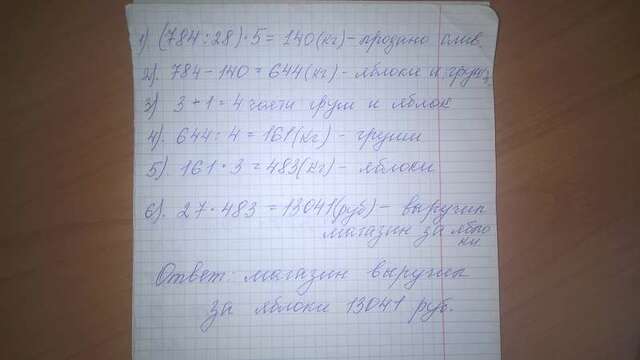 1) (784:28)·5 = 140(кг) - продано слив
2). 784 - 140 = 644(кг) - яблоки и груш
3) 3 + 1 = 4 части груш и яблок
4). 644 : 4 = 161(кг) - груши
5). 161 · 3 = 483(кг) - яблоки
6). 27 · 483 = 13041(руб) - выручил
магазин за ябло
ки
Ответ: магазин выручил
за яблоки 13041 руб.